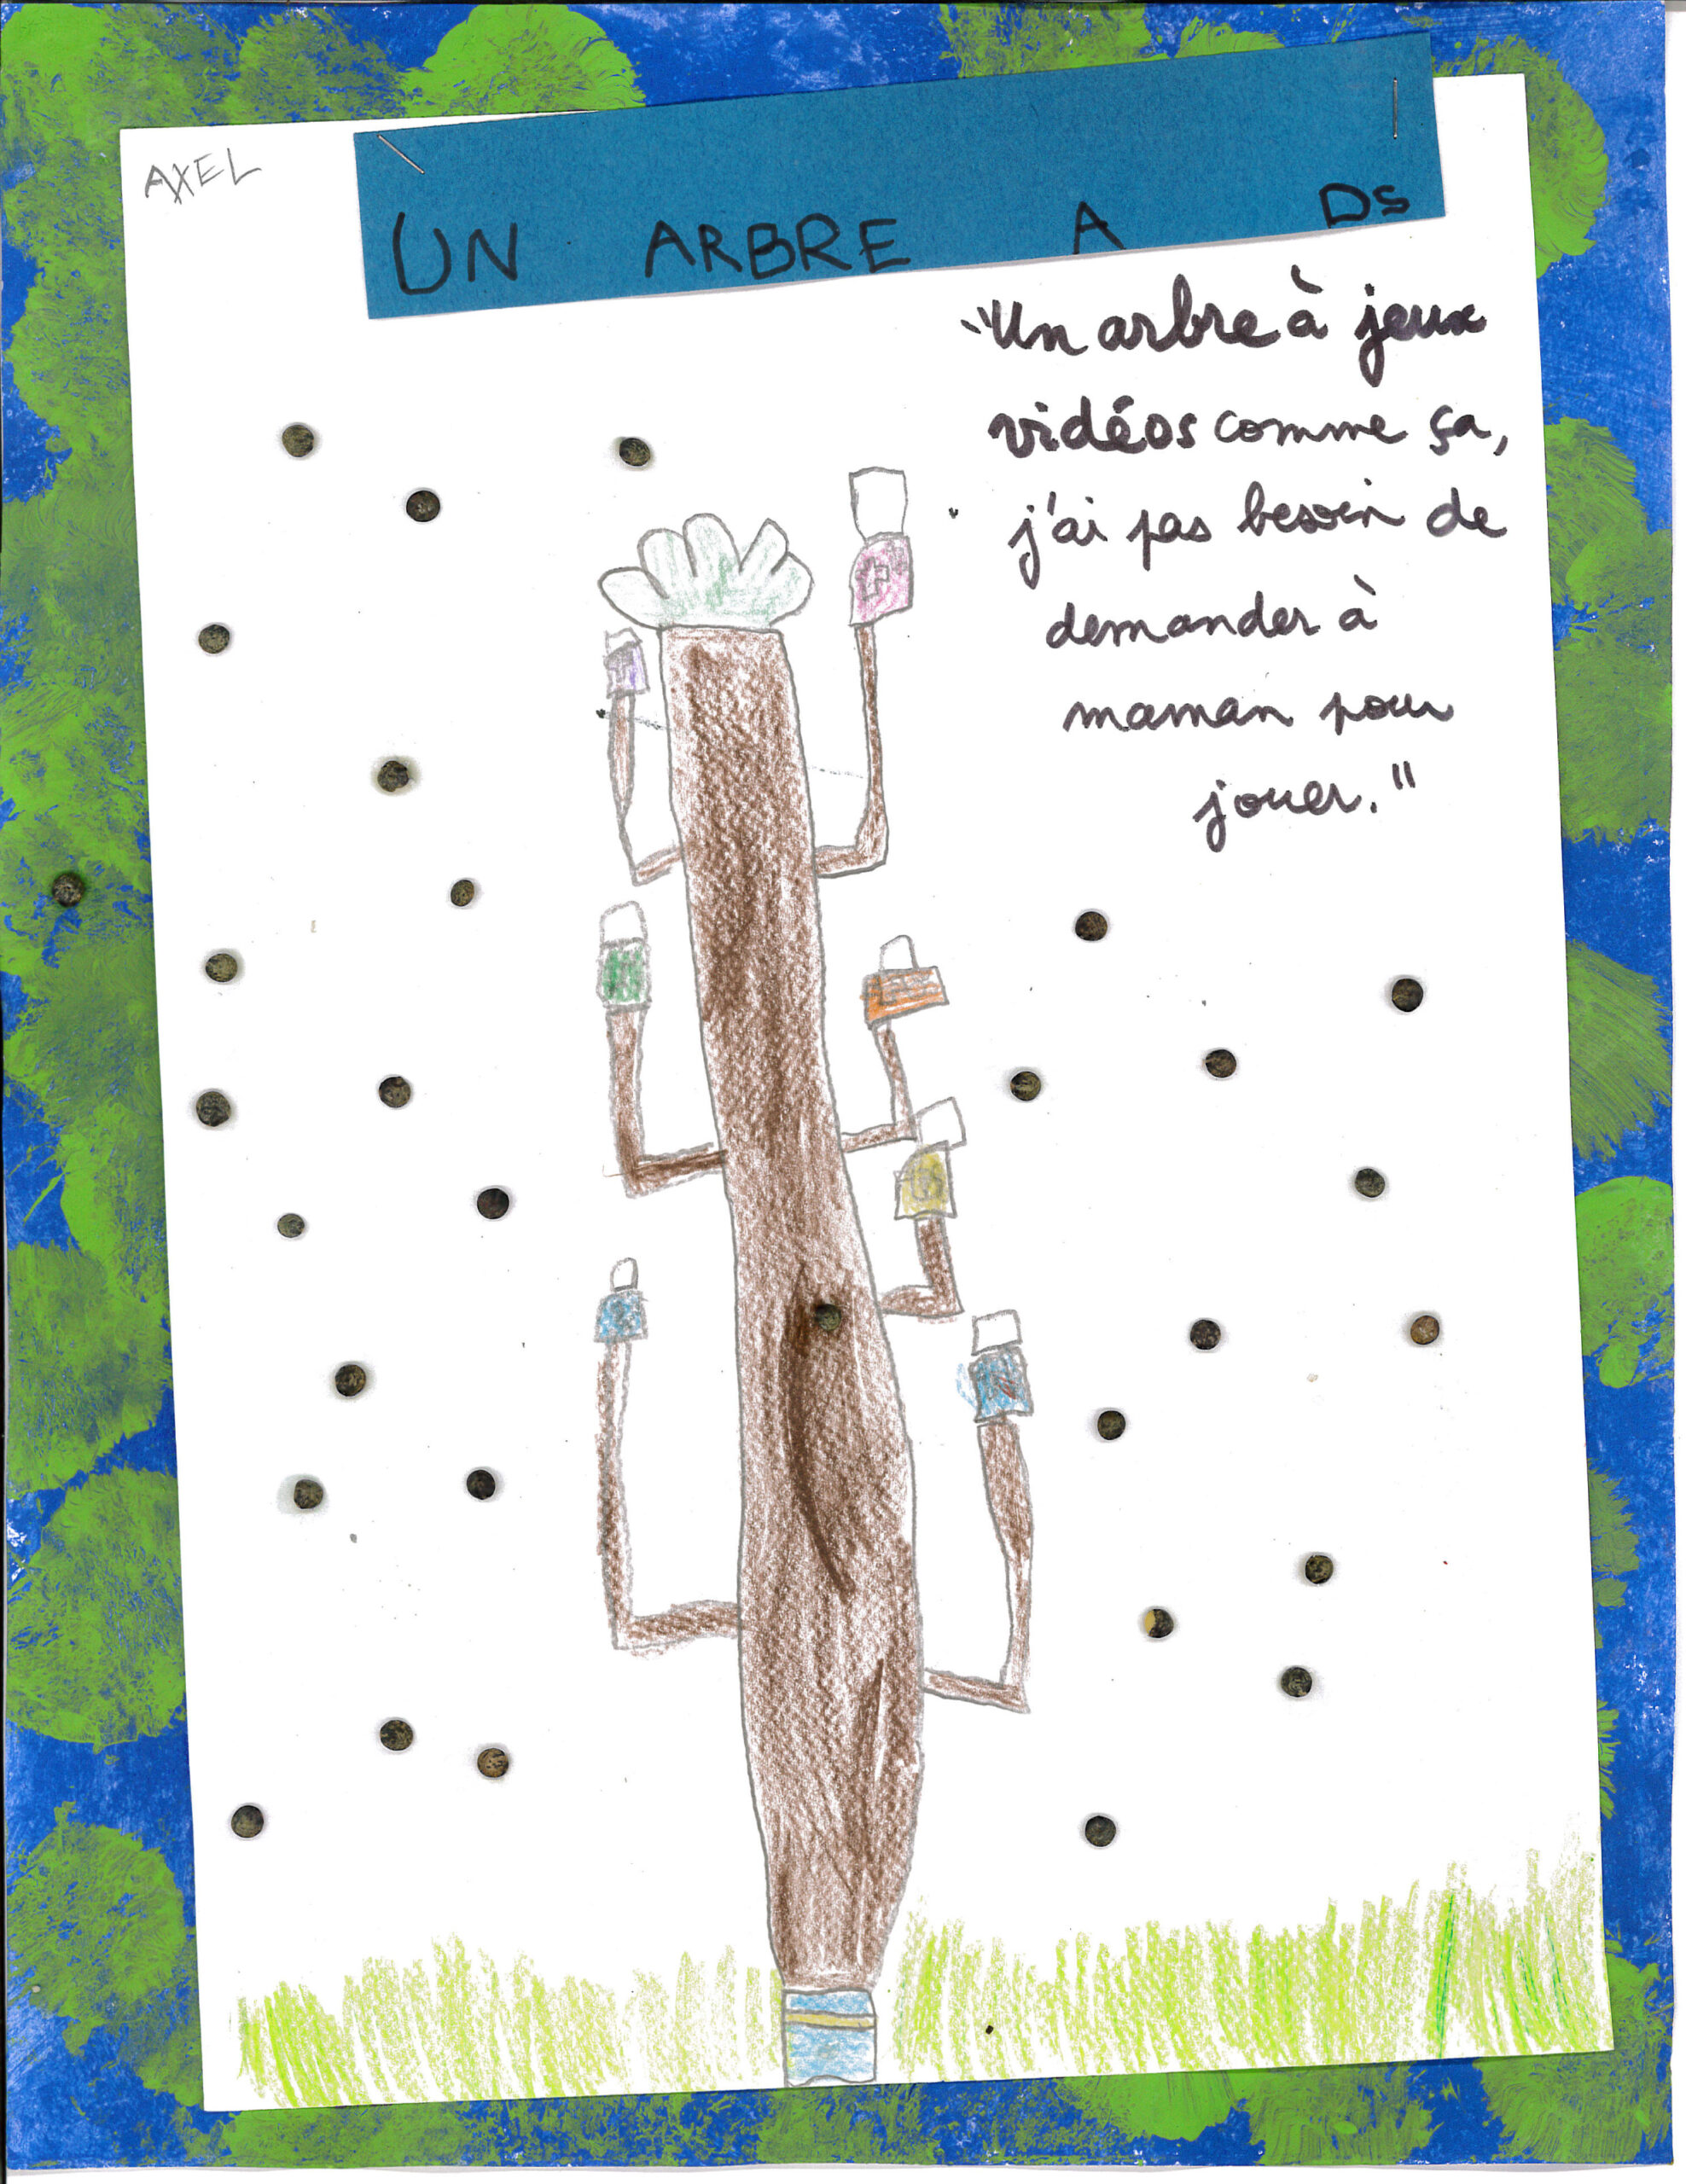 AXEL
UN ARBRE A DS
"Un arbre à jeux
vidéos comme ça,
j'ai pas besoin de
demander à
maman pour
jouer."